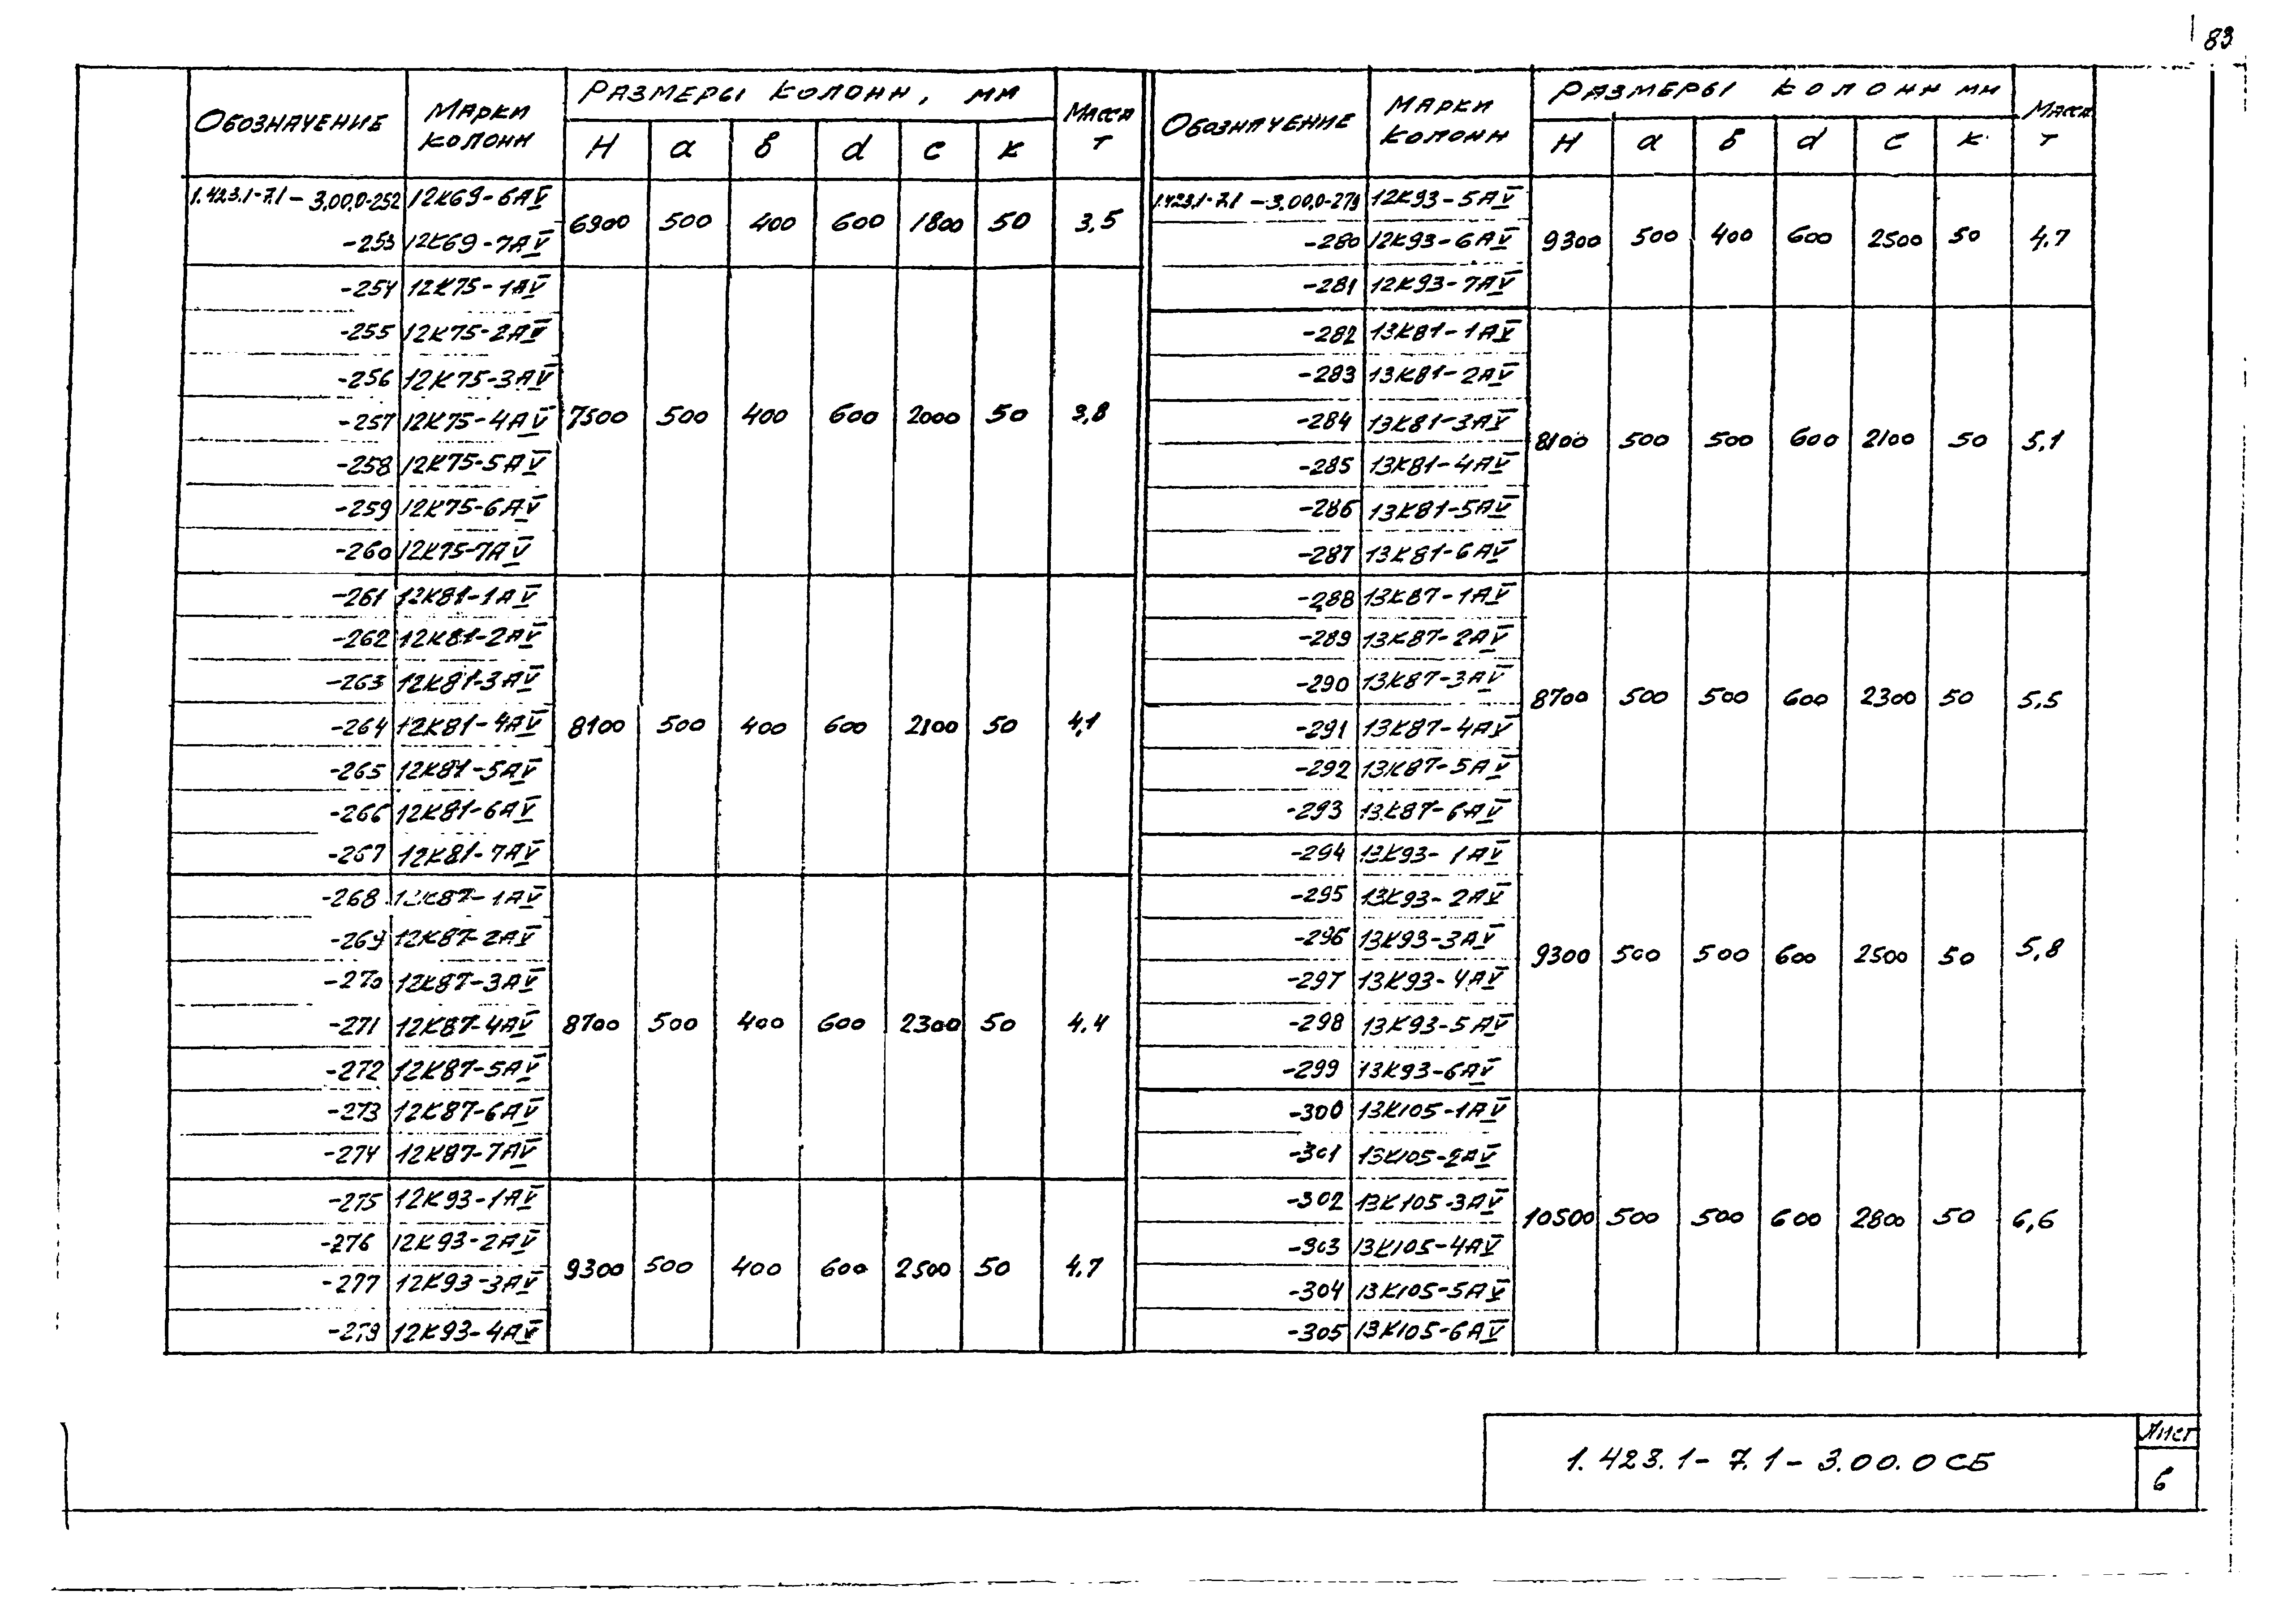 83
Обозначение Марки колонн Размеры колонн, мм Масса т
H a в d c к
1.423.1-7.1-3.00.0-252 12К69-6АV
-253 12К69-7АV
6900 500 400 600 1800 50 3,5
-254 12К75-1АV
-255 12К75-2АV
-256 12К75-3АV
-257 12К75-4АV 7500 500 400 600 2000 50 3,8
-258 12К75-5АV
-259 12К75-6АV
-260 12К75-7АV
-261 12К81-1АV
-262 12К81-2АV
-263 12К81-3АV
-264 12К81-4АV 8100 500 400 600 2100 50 4,1
-265 12К81-5АV
-266 12К81-6АV
-267 12К81-7АV
-268 12К87-1АV
-269 12К87-2АV
-270 12К87-3АV
-271 12К87-4АV 8700 500 400 600 2300 50 4.4
-272 12К87-5АV
-273 12К87-6АV
-274 12К87-7АV
-275 12К93-1АV
-276 12К93-2АV
-277 12К93-3АV 9300 500 400 600 2500 50 4.7
-279 12К93-4АV
Обозначение Марки колонн Размеры колонн мм Масса т
H a в d c к
1.423.1-7.1-3.00.0-279 12К93-5АV
-280 12К93-6АV 9300 500 400 600 2500 50 4.7
-281 12К93-7АV
-282 13К81-1АV
-283 13К81-2АV
-284 13К81-3АV 8100 500 500 600 2100 50 5,1
-285 13К81-4АV
-286 13К81-5АV
-287 13К81-6АV
-288 13К87-1АV
-289 13К87-2АV
-290 13К87-3АV 8700 500 500 600 2300 50 5.5
-291 13К87-4АV
-292 13К87-5АV
-293 13К87-6АV
-294 13К93-1АV
-295 13К93-2АV
-296 13К93-3АV 9300 500 500 600 2500 50 5,8
-297 13К93-4АV
-298 13К93-5АV
-299 13К93-6АV
-300 13К105-1АV
-301 13К105-2АV
-302 13К105-3АV 10500 500 500 600 2800 50 6,6
-303 13К105-4АV
-304 13К105-5АV
-305 13К105-6АV
1.423.1-7.1-3.00.0СБ
Лист
6